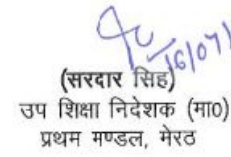 16/07/
(सरदार सिंह)
उप शिक्षा निदेशक (मा०)
प्रथम मण्डल, मेरठ